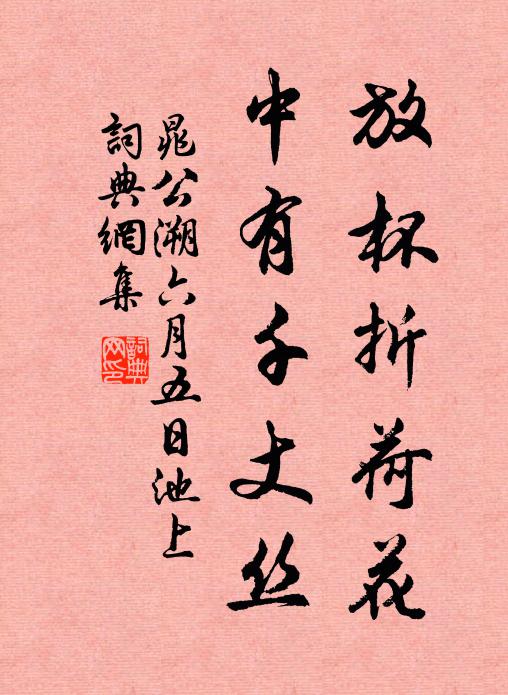 放杯折荷花
中有千丈丝
晁公溯六月五日池上
詞典網集
詞典網印